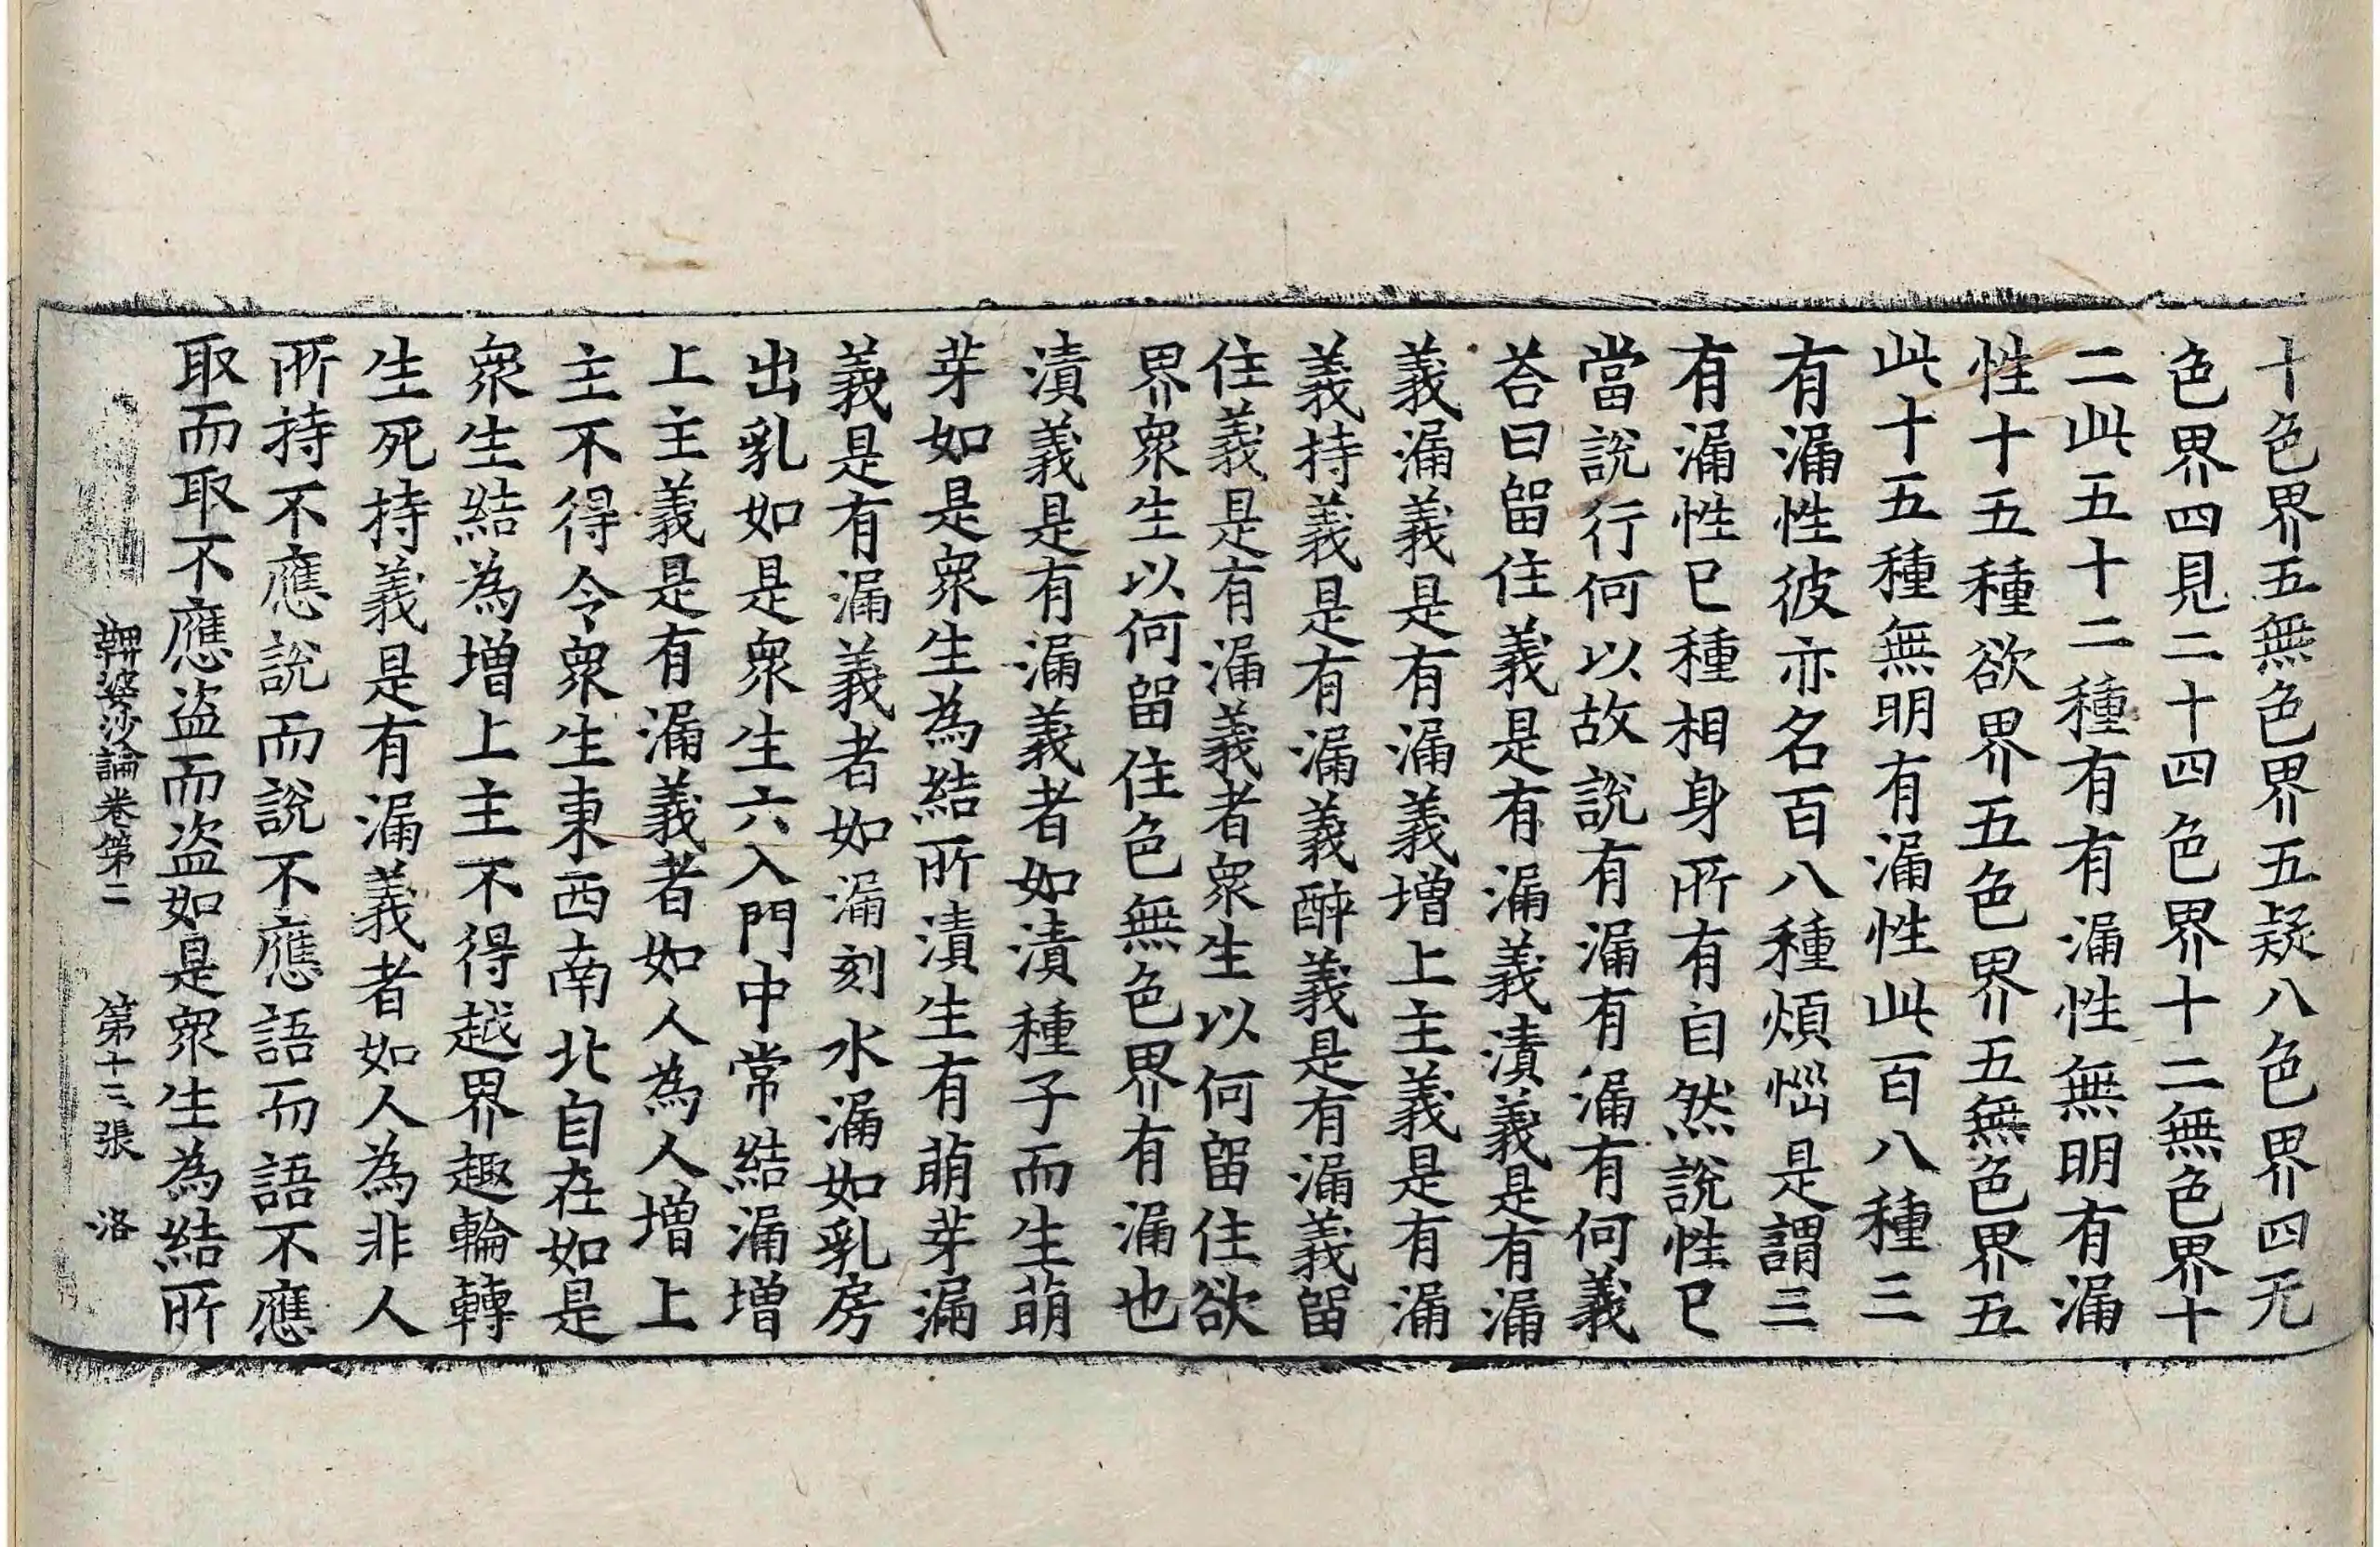 十色界五無色界五疑八色界四无
色界四見二十四色界十二無色界十
二此五十二種有有漏性無明有漏
性十五種欲界五色界五無色界五
此十五種無明有漏性此百八種三
有漏性彼亦名百八種煩惱是謂三
有漏性已種相身所有自然說性已
當說行何以故說有漏有漏有何義
荅曰留住義是有漏義漬義是有漏
義漏義是有漏義增上主義是有漏
義持義是有漏義醉義是有漏義留
住義是有漏義者衆生以何留住欲
界衆生以何留住色無色界有漏也
漬義是有漏義者如漬種子而生萌
芽如是衆生為結所漬生有萌芽漏
義是有漏義者如漏刻水漏如乳房
出乳如是衆生六入門中常結漏增
上主義是有漏義者如人為人增上
主不得令衆生東西南北自在如是
衆生結為增上主不得越界趣輪轉
生死持義是有漏義者如人為非人
所持不應說而說不應語而語不應
取而取不應盜而盜如是衆生為結所
鞞婆沙論卷第二 第十三張 洛